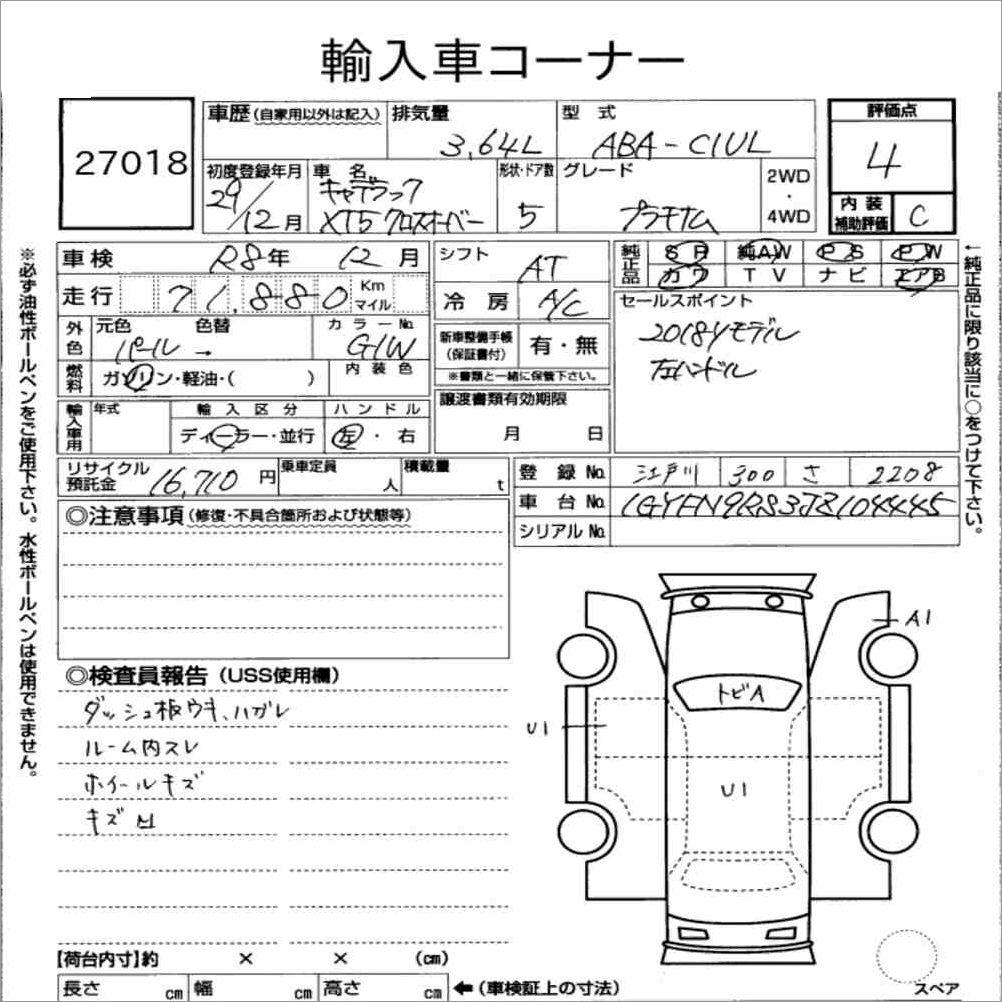 輸入車コーナー
27018
車歴 (自家用以外は記入)
排気量
3,64L
型 式
ABA-C1UL
評価点
4
初度登録年月
29/12月
車 名
キャデラック
XT5 クロスオーバー
形状・ドア数
5
グレード
プラチナム
2WD
・
4WD
内 装
補助評価
C
車検 R8年 12月
走行 71,880 Km
マイル
外色
元色 色替
パール →
カラーNo.
G1W
燃料
ガソリン・軽油・( )
内 装 色
輸入車用
年式
輸 入 区 分
ディーラー・並行
ハ ン ド ル
左・右
シフト AT
冷 房 A/C
新車整備手帳
(保証書付)
有・無
※書類と一緒に保管下さい。
譲渡書類有効期限
月 日
純正品
S R 純AW P S P W
カワ T V ナ ビ エアB
セールスポイント
2018Yモデル
左ハンドル
リサイクル
預託金
16,710円
乗車定員
人
積載量
t
登 録 No. 江戸川 300 さ 2208
車 台 No. 1GYFN9RS3JZ104445
シリアル No.
◎注意事項(修復・不具合箇所および状態等)
◎検査員報告(USS使用欄)
ダッシュ板ウキ、ハガレ
ルーム内スレ
ホイールキズ
キズ凹
A1
トビA
U1
U1
【荷台内寸】約 × × (cm)
長さ cm 幅 cm 高さ cm ←(車検証上の寸法)
スペア
※必ず油性ボールペンをご使用下さい。水性ボールペンは使用できません。
←純正品に限り該当に○をつけて下さい。